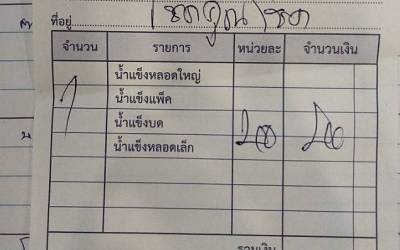 ที่อยู่
จำนวน รายการ หน่วยละ จำนวนเงิน
น้ำแข็งหลอดใหญ่
น้ำแข็งแพ็ค
1 น้ำแข็งบด 200 200
น้ำแข็งหลอดเล็ก
รวมเงิน